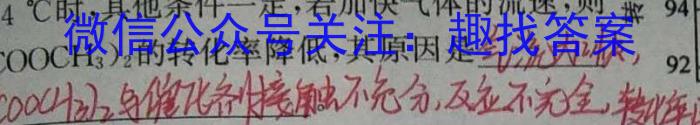 4 ℃时,其他条件一定,若加快气体的流速,则 94
微信公众号关注：趣找答案
COOCH₃)₂的转化率降低,其原因是 92
COOCH₃)₂与催化剂接触不充分,反应不完全,转化率